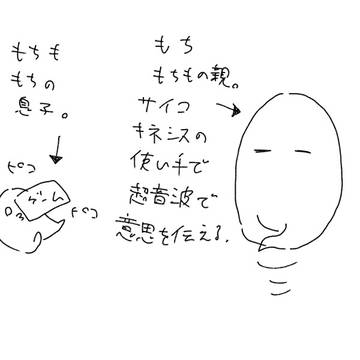 もちも
もちの
息子。
ピコ
ゲーム
ピコ
もち
もちもの親。
サイコ
キネシスの
使い手で
超音波で
意思を伝える。